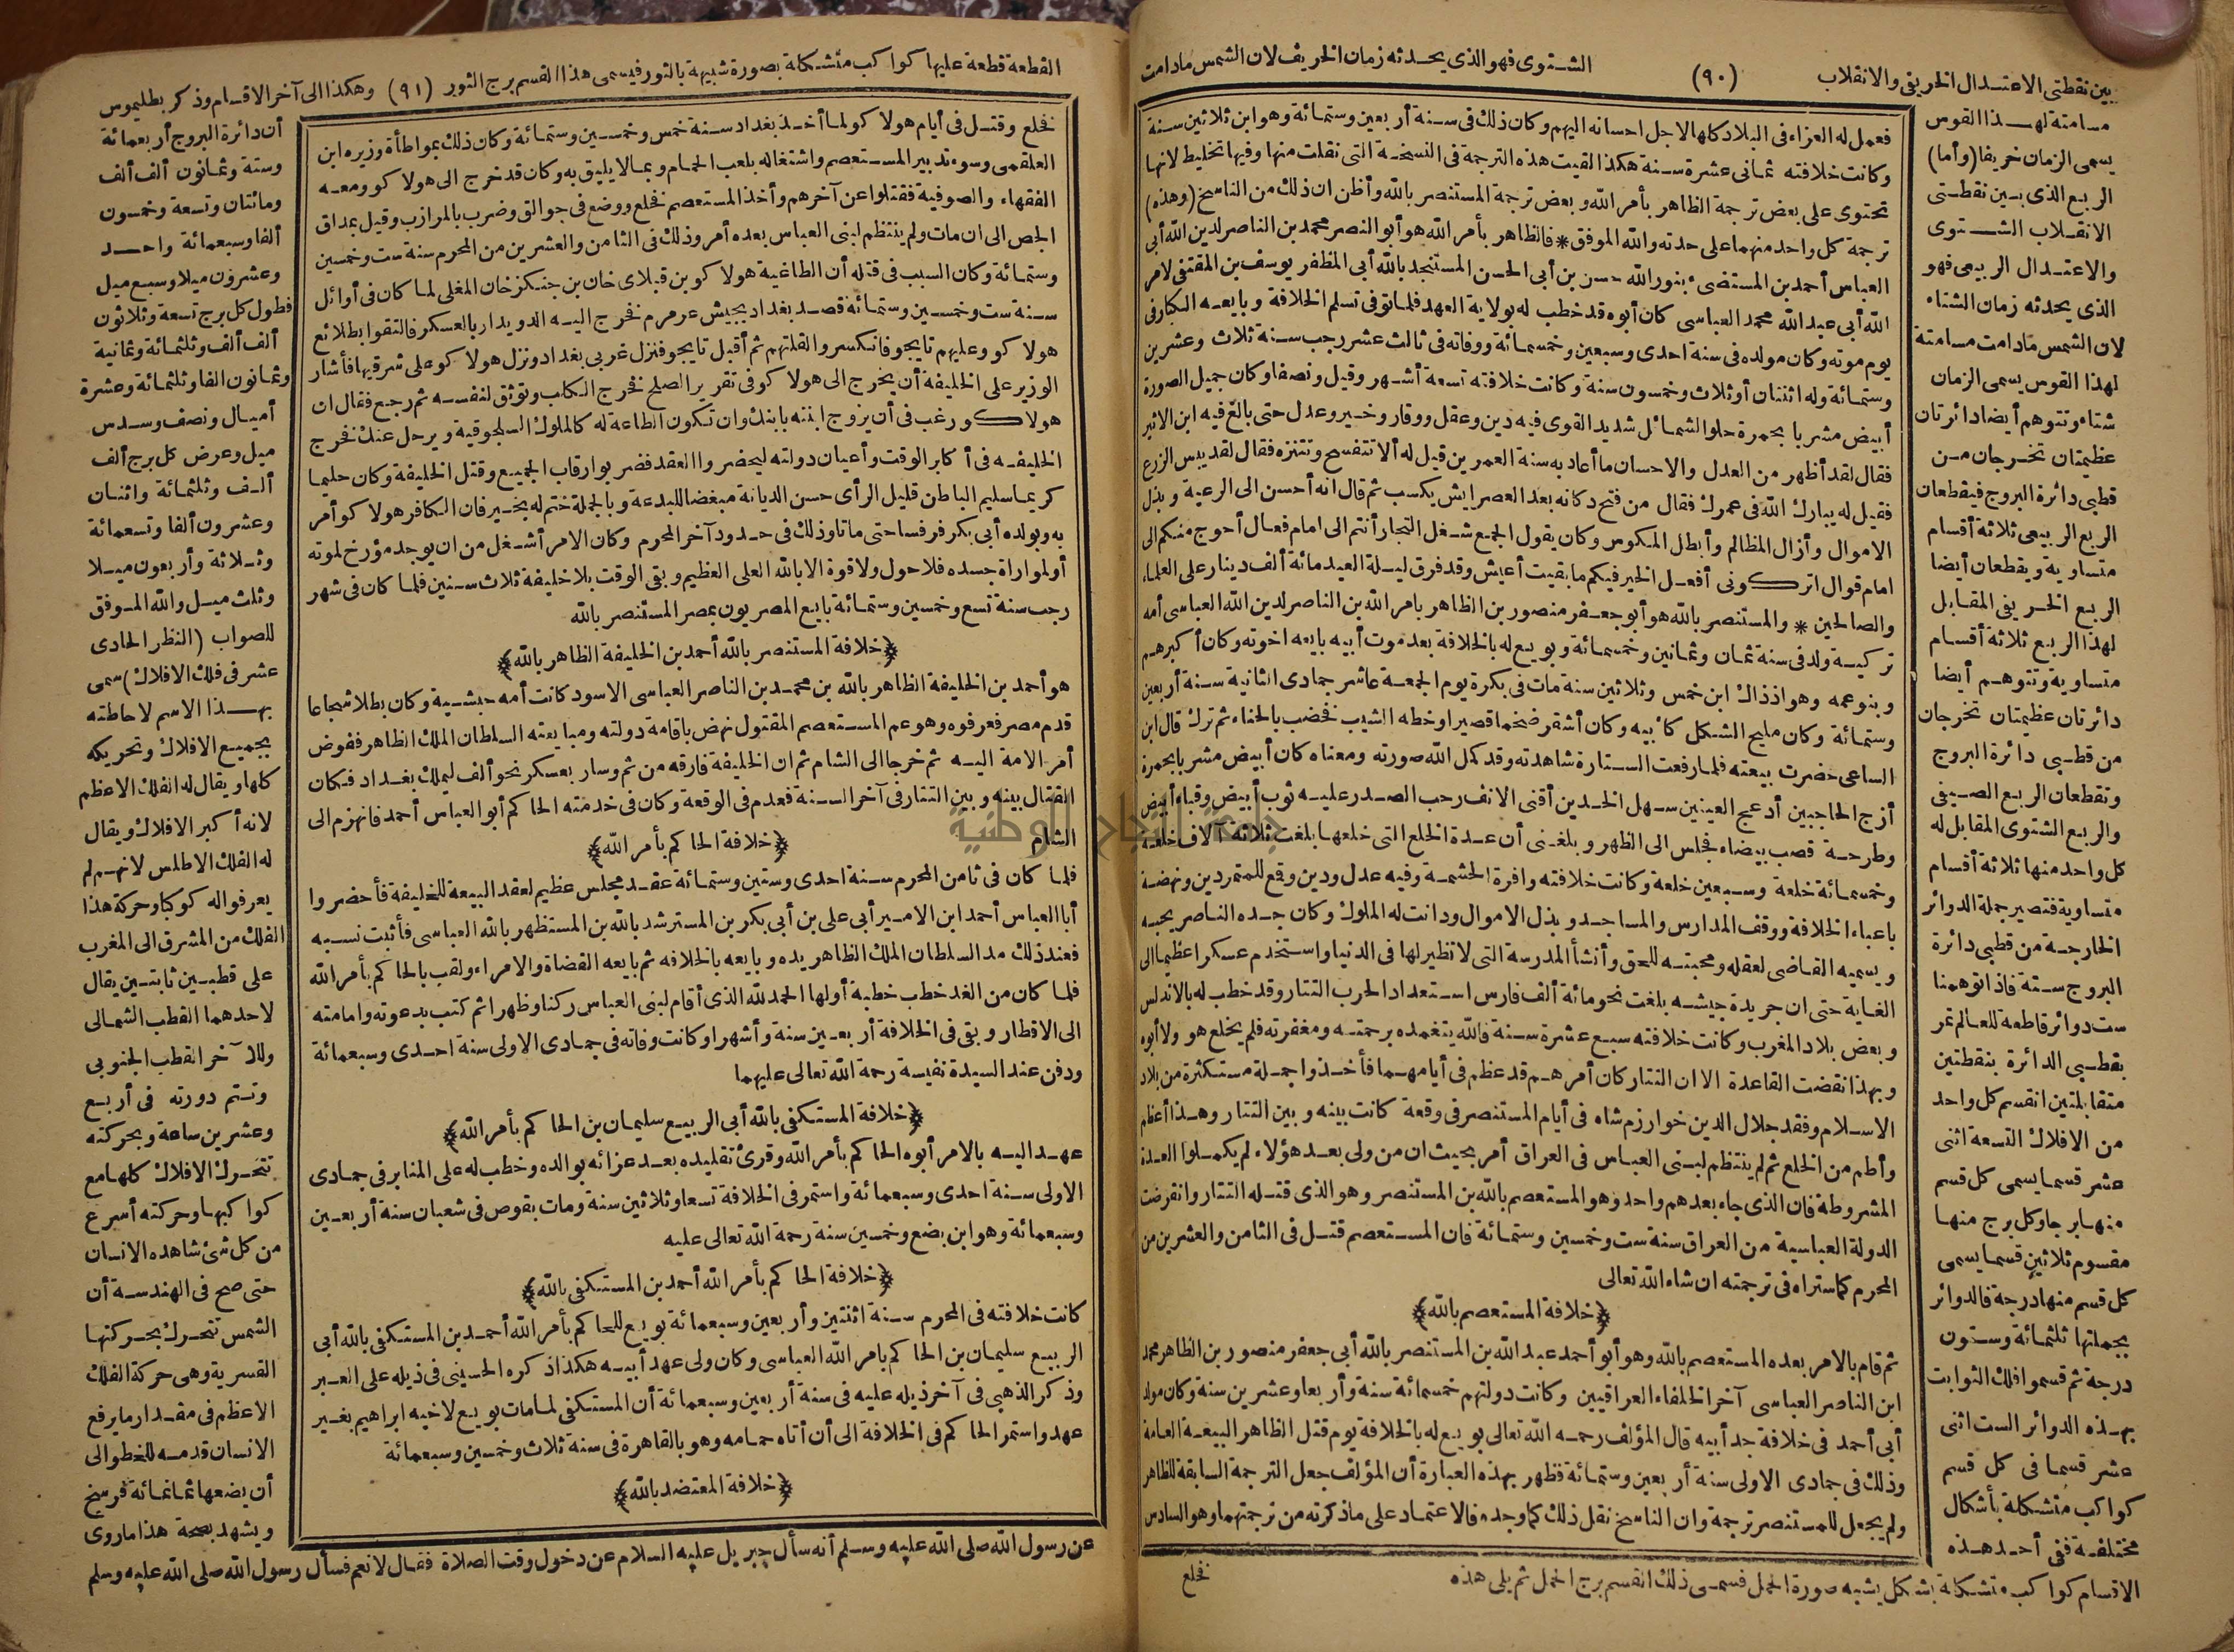 بين نقطتى الاعتدال الخريفى والانقلاب (٩٠) الشتوى فهو الذى يحدثه زمان الخريف لان الشمس مادامت
مسامتة لهذا القوس
يسمى الزمان خريفا (وأما)
الربع الذى بين نقطتى
الانقلاب الشتوى
والاعتدال الربيعى فهو
الذى يحدثه زمان الشتاء
لان الشمس مادامت مسامتة
لهذا القوس يسمى الزمان
شتاء وتتوهم أيضا دائرتان
عظيمتان تخرجان من
قطبى دائرة البروج فيقطعان
الربع الربيعى ثلاثة أقسام
متساوية ويقطعان أيضا
الربع الخريفى المقابل
لهذا الربع ثلاثة أقسام
متساوية وتتوهم أيضا
دائرتان عظيمتان تخرجان
من قطبى دائرة البروج
وتقطعان الربع الصيفى
والربع الشتوى المقابل له
كل واحد منها ثلاثة أقسام
متساوية فتصير جملة الدوائر
الخارجة من قطبى دائرة
البروج ستة فاذا توهمنا
ست دوائر قاطعة للعالم تمر
بقطبى الدائرة بنقطتين
متقابلتين انقسم كل واحد
من الافلاك التسعة اثنى
عشر قسما يسمى كل قسم
منها برجا وكل برج منها
مقسوم ثلاثين قسما يسمى
كل قسم منها درجة فالدوائر
بجملتها ثلثمائة وستون
درجة ثم قسموا فلك الثوابت
بهذه الدوائر الست اثنى
عشر قسما فى كل قسم
كواكب متشكلة بأشكال
مختلفة ففى أحد هذه
الاقسام كواكب متشكلة بشكل يشبه صورة الحمل فسمى ذلك القسم برج الحمل ثم يلى هذه
فعمل له العزاء فى البلاد كلها لاجل احسانه اليهم وكان ذلك فى سنة أربعين وستمائة وهو ابن ثلاثين سنة
وكانت خلافته ثمانى عشرة سنة هكذا لقيت هذه الترجمة فى النسخة التى نقلت منها وفيها تخليط لانها
تحتوى على بعض ترجمة الظاهر بأمر الله وبعض ترجمة المستنصر بالله وأظن ان ذلك من الناسخ (وهذه)
ترجمة كل واحد منهما على حدته والله الموفق * فالظاهر بأمر الله هو أبو النصر محمد بن الناصر لدين الله أبى
العباس أحمد بن المستضىء بنور الله حسن بن أبى الحسن المستنجد بالله أبى المظفر يوسف بن المقتفى لامر
الله أبى عبد الله محمد العباسى كان أبوه قد خطب له بولاية العهد فلما توفى تسلم الخلافة وبايعه الكبار فى
يوم موته وكان مولده فى سنة احدى وسبعين وخمسمائة ووفاته فى ثالث عشر رجب سنة ثلاث وعشرين
وستمائة وله اثنتان أو ثلاث وخمسون سنة وكانت خلافته تسعة أشهر وقيل ونصفا وكان جميل الصورة
أبيض مشربا بحمرة حلو الشمائل شديد القوى فيه دين وعقل ووقار وخير وعدل حتى بالغ فيه ابن الاثير
فقال لقد أظهر من العدل والاحسان ما أعاد به سنة العمرين قيل له ألا تتفسح وتتنزه فقال لقد يبس الزرع
فقيل له يبارك الله فى عمرك فقال من فتح دكانه بعد العصر ايش يكسب ثم قال انه أحسن الى الرعية وبذل
الاموال وأزال المظالم وأبطل المكوس وكان يقول الجمع شغل التجار أنتم الى امام فعال أحوج منكم الى
امام قوال اتركونى أفعل الخير فيكم ما بقيت أعيش وقد فرق ليلة العيد مائة ألف دينار على العلماء
والصالحين * والمستنصر بالله هو أبو جعفر منصور بن الظاهر بامر الله بن الناصر لدين الله العباسى أمه
تركية ولد فى سنة ثمان وثمانين وخمسمائة وبويع له بالخلافة بعد موت أبيه بايعه اخوته وكان أكبرهم
وبنو عمه وهو اذ ذاك ابن خمس وثلاثين سنة مات فى بكرة يوم الجمعة عاشر جمادى الثانية سنة أربعين
وستمائة وكان مليح الشكل كأبيه وكان أشقر ضخما قصيرا وخطه الشيب فخضب بالحناء ثم ترك قال ابن
الساعى حضرت بيعته فلما رفعت الستارة شاهدته وقد كمل الله صورته ومعناه كان أبيض مشربا بحمرة
أزج الحاجبين أدعج العينين سهل الخدين أقنى الانف رحب الصدر عليه ثوب أبيض وقباء أبيض
وطرحة قصب بيضاء فجلس الى الظهر وبلغنى أن عدة الخلع التى خلعها بلغت ثلاثة آلاف خلعة
وخمسمائة خلعة وسبعين خلعة وكانت خلافته وافرة الحشمة وفيه عدل ودين وقع للمتمردين ونهضة
باعباء الخلافة ووقف المدارس والمساجد وبذل الاموال ودانت له الملوك وكان جده الناصر يحبه
ويسميه القاضى لعقله ومحبته للحق وأنشأ المدرسة التى لا نظير لها فى الدنيا واستخدم عسكرا عظيما الى
الغاية حتى ان جريدة جيشه بلغت نحو مائة ألف فارس استعداد الحرب التتار وقد خطب له بالاندلس
وبعض بلاد المغرب وكانت خلافته سبع عشرة سنة فالله يتغمده برحمته ومغفرته فلم يخلع هو ولا أبوه
وبهذا نقضت القاعدة الا ان التتار كان أمرهم قد عظم فى أيامهما فأخذوا جملة مستكثرة من بلاد
الاسلام وفقد جلال الدين خوارزم شاه فى أيام المستنصر فى وقعة كانت بينه وبين التتار وهذا أعظم
وأطم من الخلع ثم لم ينتظم لبنى العباس فى العراق أمر بحيث ان من ولى بعد هؤلاء لم يكملوا العدة
المشروطة فان الذى جاء بعدهم واحد وهو المستعصم بالله بن المستنصر وهو الذى قتله التتار وانقرضت
الدولة العباسية من العراق سنه ست وخمسين وستمائة فان المستعصم قتل فى الثامن والعشرين من
المحرم كما ستراه فى ترجمته ان شاء الله تعالى
﴿خلافة المستعصم بالله﴾
ثم قام بالامر بعده المستعصم بالله وهو أبو أحمد عبد الله بن المستنصر بالله أبى جعفر منصور بن الظاهر محمد
ابن الناصر العباسى آخر الخلفاء العراقيين وكانت دولتهم خمسمائة سنة وأربعا وعشرين سنة وكان مولد
أبى أحمد فى خلافة جد أبيه قال المؤلف رحمه الله تعالى بويع له بالخلافة يوم قتل الظاهر البيعة العامة
وذلك فى جمادى الاولى سنة أربعين وستمائة فظهر بهذه العبارة أن المؤلف جعل الترجمة السابقة للظاهر
ولم يجعل للمستنصر ترجمة وان الناسخ نقل ذلك كما وجده فالاعتماد على ما ذكرته من ترجمتهما وهو السادس
فخلع
القطعة قطعة عليها كواكب متشكلة بصورة شبيهة بالثور فيسمى هذا القسم برج الثور (٩١) وهكذا الى آخر الاقسام وذكر بطليموس
فخلع وقتل فى أيام هولاكو لما أخذ بغداد سنة خمس وخمسين وستمائة وكان ذلك بمواطأة وزيره ابن
العلقمى وسوء تدبير المستعصم واشتغاله بلعب الحمام وبما لا يليق به وكان قد خرج الى هولاكو ومعه
الفقهاء والصوفية فقتلوا عن آخرهم وأخذ المستعصم فخلع ووضع فى جوالق وضرب بالمرازب وقيل بمداق
الجص الى ان مات ولم ينتظم لبنى العباس بعده أمر وذلك فى الثامن والعشرين من المحرم سنة ست وخمسين
وستمائة وكان السبب فى قتله أن الطاغية هولاكو بن قبلاى خان بن جنكزخان المغلى لما كان فى أوائل
سنة ست وخمسين وستمائة قصد بغداد بجيش عرمرم فخرج اليه الدويدار بالعسكر فالتقوا بطلائع
هولاكو وعليهم تايجو فانكسروا لقلتهم ثم أقبل تايجو فنزل غربى بغداد ونزل هولاكو على شرقيها فأشار
الوزير على الخليفة أن يخرج الى هولاكو فى تقرير الصلح فخرج الكلب وتوثق لنفسه ثم رجع فقال ان
هولاكو رغب فى أن يزوج ابنته بابنك وان تكون الطاعة له كالملوك السلجوقية ويرحل عنك فخرج
الخليفه فى أكابر الوقت وأعيان دولته ليحضروا العقد فضربوا رقاب الجميع وقتل الخليفة وكان حليما
كريما سليم الباطن قليل الرأى حسن الديانة مبغضا للبدعة وبالجملة ختم له بخير فان الكافر هولاكو أمر
به وبولده أبى بكر فرفسا حتى ماتا وذلك فى حدود آخر المحرم وكان الامر أشغل من ان يوجد مؤرخ لموته
أو لمواراة جسده فلا حول ولا قوة الا بالله العلى العظيم وبقى الوقت بلا خليفة ثلاث سنين فلما كان فى شهر
رجب سنة تسع وخمسين وستمائة بايع المصريون بمصر المستنصر بالله
﴿خلافة المستنصر بالله أحمد بن الخليفة الظاهر بالله﴾
هو أحمد بن الخليفة الظاهر بالله بن محمد بن الناصر العباسى الاسود كانت أمه حبشية وكان بطلا شجاعا
قدم مصر فعرفوه وهو عم المستعصم المقتول نهض باقامة دولته ومبايعته السلطان الملك الظاهر ففوض
أمر الامة اليه ثم خرجا الى الشام ثم ان الخليفة فارقه من ثم وسار بعسكر نحو ألف ليملك بغداد فكان
القتال بينه وبين التتار فى آخر السنة فعدم فى الوقعة وكان فى خدمته الحاكم أبو العباس أحمد فانهزم الى
الشام ﴿خلافة الحاكم بأمر الله﴾
فلما كان فى ثامن المحرم سنة احدى وستين وستمائة عقد مجلس عظيم لعقد البيعة للخليفة فأحضروا
أبا العباس أحمد ابن الامير أبى على بن أبى بكر بن المسترشد بالله بن المستظهر بالله العباسى فأثبت نسبه
فعند ذلك مد السلطان الملك الظاهر يده وبايعه بالخلافه ثم بايعه القضاة والامراء ولقب بالحاكم بأمر الله
فلما كان من الغد خطب خطبة أولها الحمد لله الذى أقام لبنى العباس ركنا وظهرا ثم كتب بدعوته وامامته
الى الاقطار وبقى فى الخلافة أربعين سنة وأشهرا وكانت وفاته فى جمادى الاولى سنة احدى وسبعمائة
ودفن عند السيدة نفيسة رحمة الله تعالى عليهما
﴿خلافة المستكفى بالله أبى الربيع سليمان بن الحاكم بأمر الله﴾
عهد اليه بالامر أبوه الحاكم بأمر الله وقرئ تقليده بعد عزائه بوالده وخطب له على المنابر فى جمادى
الاولى سنة احدى وسبعمائة واستمر فى الخلافة تسعا وثلاثين سنة ومات بقوص فى شعبان سنة أربعين
وسبعمائة وهو ابن بضع وخمسين سنة رحمة الله تعالى عليه
﴿خلافة الحاكم بأمر الله أحمد بن المستكفى بالله﴾
كانت خلافته فى المحرم سنة اثنتين وأربعين وسبعمائة بويع للحاكم بأمر الله أحمد بن المستكفى بالله أبى
الربيع سليمان بن الحاكم بامر الله العباسى وكان ولى عهد أبيه هكذا ذكره الحسينى فى ذيله على العبر
وذكر الذهبى فى آخر ذيله عليه فى سنة أربعين وسبعمائة أن المستكفى لما مات بويع لاخيه ابراهيم بغير
عهد واستمر الحاكم فى الخلافة الى أن أتاه حمامه وهو بالقاهرة فى سنة ثلاث وخمسين وسبعمائة
﴿خلافة المعتضد بالله﴾
أن دائرة البروج أربعمائة
وستة وثمانون ألف ألف
ومائتان وتسعة وخمسون
ألفا وسبعمائة واحد
وعشرون ميلا وسبع ميل
فطول كل برج تسعة وثلاثون
ألف ألف وثلثمائة وثمانية
وثمانون ألفا وثلثمائة وعشرة
أميال ونصف وسدس
ميل وعرض كل برج ألف
ألف وثلثمائة واثنان
وعشرون ألفا وتسعمائة
وثلاثة وأربعون ميلا
وثلث ميل والله الموفق
للصواب (النظر الحادى
عشر فى فلك الافلاك) سمى
بهذا الاسم لاحاطته
بجميع الافلاك وتحريكه
كلها ويقال له الفلك الاعظم
لانه أكبر الافلاك ويقال
له الفلك الاطلس لانهم لم
يعرفوا له كوكبا وحركة هذا
الفلك من المشرق الى المغرب
على قطبين ثابتين يقال
لاحدهما القطب الشمالى
وللآخر القطب الجنوبى
وتتم دورته فى أربع
وعشرين ساعة وبحركته
تتحرك الافلاك كلها مع
كواكبها وحركته أسرع
من كل شئ شاهده الانسان
حتى صح فى الهندسة أن
الشمس تتحرك بحركتها
القسرية وهى حركة الفلك
الاعظم فى مقدار ما يرفع
الانسان قدمه للخطو الى
أن يضعها ثمانمائة فرسخ
ويشهد بصحة هذا ما روى
عن رسول الله صلى الله عليه وسلم أنه سأل جبريل عليه السلام عن دخول وقت الصلاة فقال لا نعم فسأل رسول الله صلى الله عليه وسلم
جامعة النجاح الوطنية